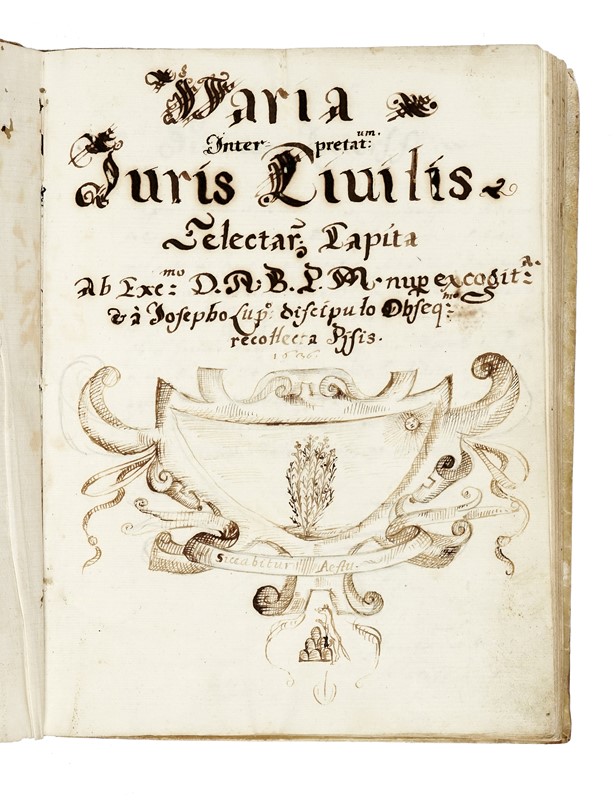 Varia
Inter- pretat:um
Juris Civilis.
Selectar; Capita
Ab Exc:mo D. A. B. L. M. nup excogit:a.
& à Josepho Lupo: discipulo Obseq:mo
recollecta Pisis.
1636
Siccabitur Aestu.